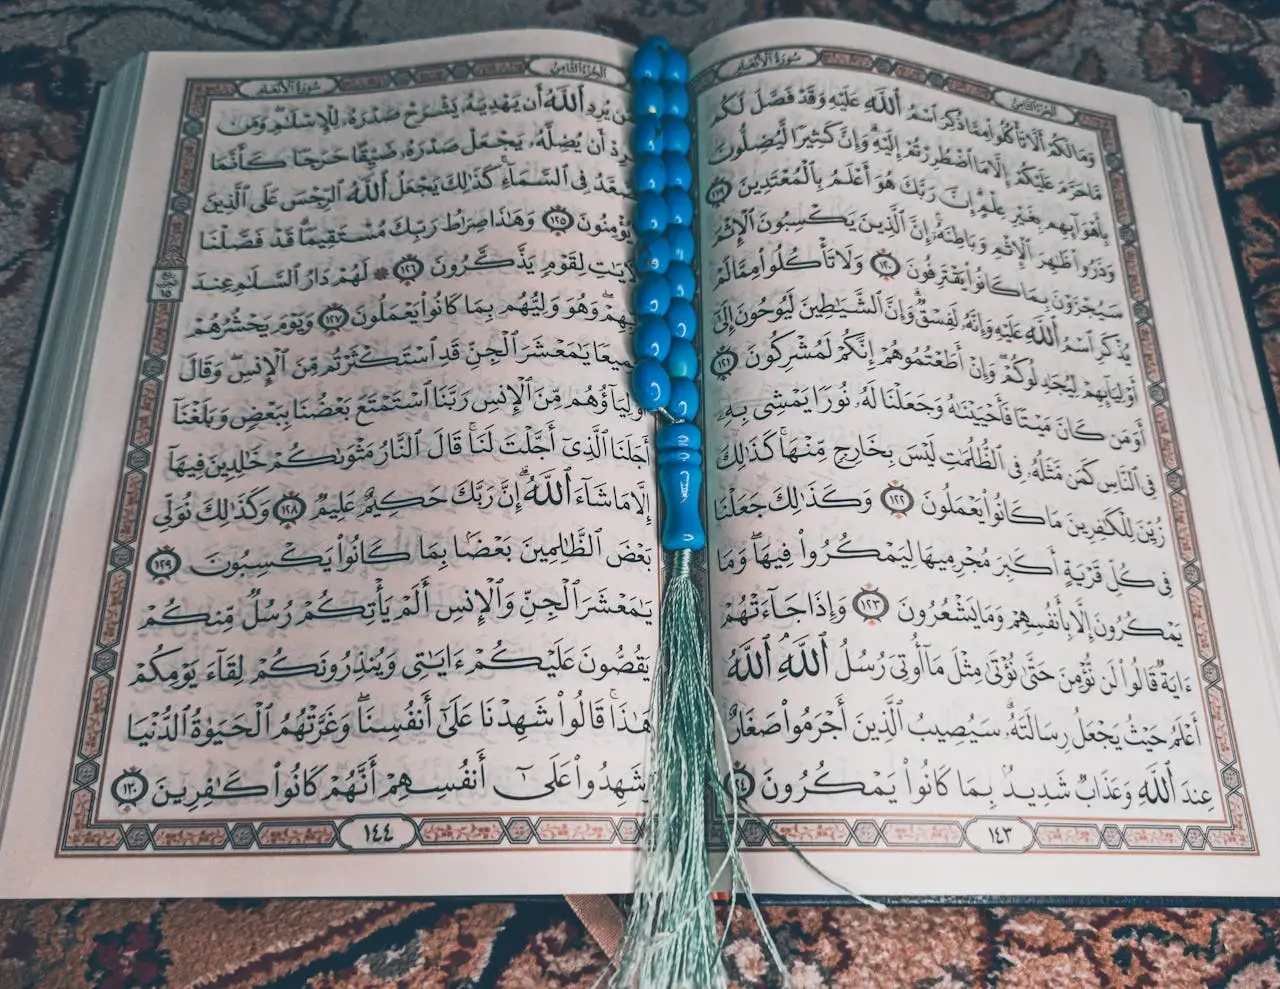 الجزء الثامن
سورة الأنعام
وَمَا لَكُمْ أَلَّا تَأْكُلُوا۟ مِمَّا ذُكِرَ ٱسْمُ ٱللَّهِ عَلَيْهِ وَقَدْ فَصَّلَ لَكُم
مَّا حَرَّمَ عَلَيْكُمْ إِلَّا مَا ٱضْطُرِرْتُمْ إِلَيْهِ ۗ وَإِنَّ كَثِيرًا لَّيُضِلُّونَ
بِأَهْوَآئِهِم بِغَيْرِ عِلْمٍ ۗ إِنَّ رَبَّكَ هُوَ أَعْلَمُ بِٱلْمُعْتَدِينَ ١١٩
وَذَرُوا۟ ظَٰهِرَ ٱلْإِثْمِ وَبَاطِنَهُۥٓ ۚ إِنَّ ٱلَّذِينَ يَكْسِبُونَ ٱلْإِثْمَ
سَيُجْزَوْنَ بِمَا كَانُوا۟ يَقْتَرِفُونَ ١٢٠ وَلَا تَأْكُلُوا۟ مِمَّا لَمْ
يُذْكَرِ ٱسْمُ ٱللَّهِ عَلَيْهِ وَإِنَّهُۥ لَفِسْقٌ ۗ وَإِنَّ ٱلشَّيَٰطِينَ لَيُوحُونَ إِلَىٰٓ
أَوْلِيَآئِهِمْ لِيُجَٰدِلُوكُمْ ۖ وَإِنْ أَطَعْتُمُوهُمْ إِنَّكُمْ لَمُشْرِكُونَ ١٢١
أَوَمَن كَانَ مَيْتًا فَأَحْيَيْنَٰهُ وَجَعَلْنَا لَهُۥ نُورًا يَمْشِى بِهِۦ
فِى ٱلنَّاسِ كَمَن مَّثَلُهُۥ فِى ٱلظُّلُمَٰتِ لَيْسَ بِخَارِجٍ مِّنْهَا ۚ كَذَٰلِكَ
زُيِّنَ لِلْكَٰفِرِينَ مَا كَانُوا۟ يَعْمَلُونَ ١٢٢ وَكَذَٰلِكَ جَعَلْنَا
فِى كُلِّ قَرْيَةٍ أَكَٰبِرَ مُجْرِمِيهَا لِيَمْكُرُوا۟ فِيهَا ۖ وَمَا
يَمْكُرُونَ إِلَّا بِأَنفُسِهِمْ وَمَا يَشْعُرُونَ ١٢٣ وَإِذَا جَآءَتْهُمْ
ءَايَةٌ قَالُوا۟ لَن نُّؤْمِنَ حَتَّىٰ نُؤْتَىٰ مِثْلَ مَآ أُوتِىَ رُسُلُ ٱللَّهِ ۘ ٱللَّهُ
أَعْلَمُ حَيْثُ يَجْعَلُ رِسَالَتَهُۥ ۗ سَيُصِيبُ ٱلَّذِينَ أَجْرَمُوا۟ صَغَارٌ
عِندَ ٱللَّهِ وَعَذَابٌ شَدِيدٌۢ بِمَا كَانُوا۟ يَمْكُرُونَ ١٢٤
١٤٣
الجزء الثامن
سورة الأنعام
يُرِدِ ٱللَّهُ أَن يَهْدِيَهُۥ يَشْرَحْ صَدْرَهُۥ لِلْإِسْلَٰمِ ۖ وَمَن
يُرِدْ أَن يُضِلَّهُۥ يَجْعَلْ صَدْرَهُۥ ضَيِّقًا حَرَجًا كَأَنَّمَا
يَصَّعَّدُ فِى ٱلسَّمَآءِ ۚ كَذَٰلِكَ يَجْعَلُ ٱللَّهُ ٱلرِّجْسَ عَلَى ٱلَّذِينَ
يُؤْمِنُونَ ١٢٥ وَهَٰذَا صِرَٰطُ رَبِّكَ مُسْتَقِيمًا ۗ قَدْ فَصَّلْنَا
ٱلْءَايَٰتِ لِقَوْمٍ يَذَّكَّرُونَ ١٢٦ ۞ لَهُمْ دَارُ ٱلسَّلَٰمِ عِندَ
رَبِّهِمْ ۖ وَهُوَ وَلِيُّهُم بِمَا كَانُوا۟ يَعْمَلُونَ ١٢٧ وَيَوْمَ يَحْشُرُهُمْ
جَمِيعًا يَٰمَعْشَرَ ٱلْجِنِّ قَدِ ٱسْتَكْثَرْتُم مِّنَ ٱلْإِنسِ ۖ وَقَالَ
أَوْلِيَآؤُهُم مِّنَ ٱلْإِنسِ رَبَّنَا ٱسْتَمْتَعَ بَعْضُنَا بِبَعْضٍ وَبَلَغْنَآ
أَجَلَنَا ٱلَّذِىٓ أَجَّلْتَ لَنَا ۚ قَالَ ٱلنَّارُ مَثْوَىٰكُمْ خَٰلِدِينَ فِيهَآ
إِلَّا مَا شَآءَ ٱللَّهُ ۗ إِنَّ رَبَّكَ حَكِيمٌ عَلِيمٌ ١٢٨ وَكَذَٰلِكَ نُوَلِّى
بَعْضَ ٱلظَّٰلِمِينَ بَعْضًۢا بِمَا كَانُوا۟ يَكْسِبُونَ ١٢٩
يَٰمَعْشَرَ ٱلْجِنِّ وَٱلْإِنسِ أَلَمْ يَأْتِكُمْ رُسُلٌ مِّنكُمْ
يَقُصُّونَ عَلَيْكُمْ ءَايَٰتِى وَيُنذِرُونَكُمْ لِقَآءَ يَوْمِكُمْ
هَٰذَا ۚ قَالُوا۟ شَهِدْنَا عَلَىٰٓ أَنفُسِنَا ۖ وَغَرَّتْهُمُ ٱلْحَيَوٰةُ ٱلدُّنْيَا
وَشَهِدُوا۟ عَلَىٰٓ أَنفُسِهِمْ أَنَّهُمْ كَانُوا۟ كَٰفِرِينَ ١٣٠
١٤٤